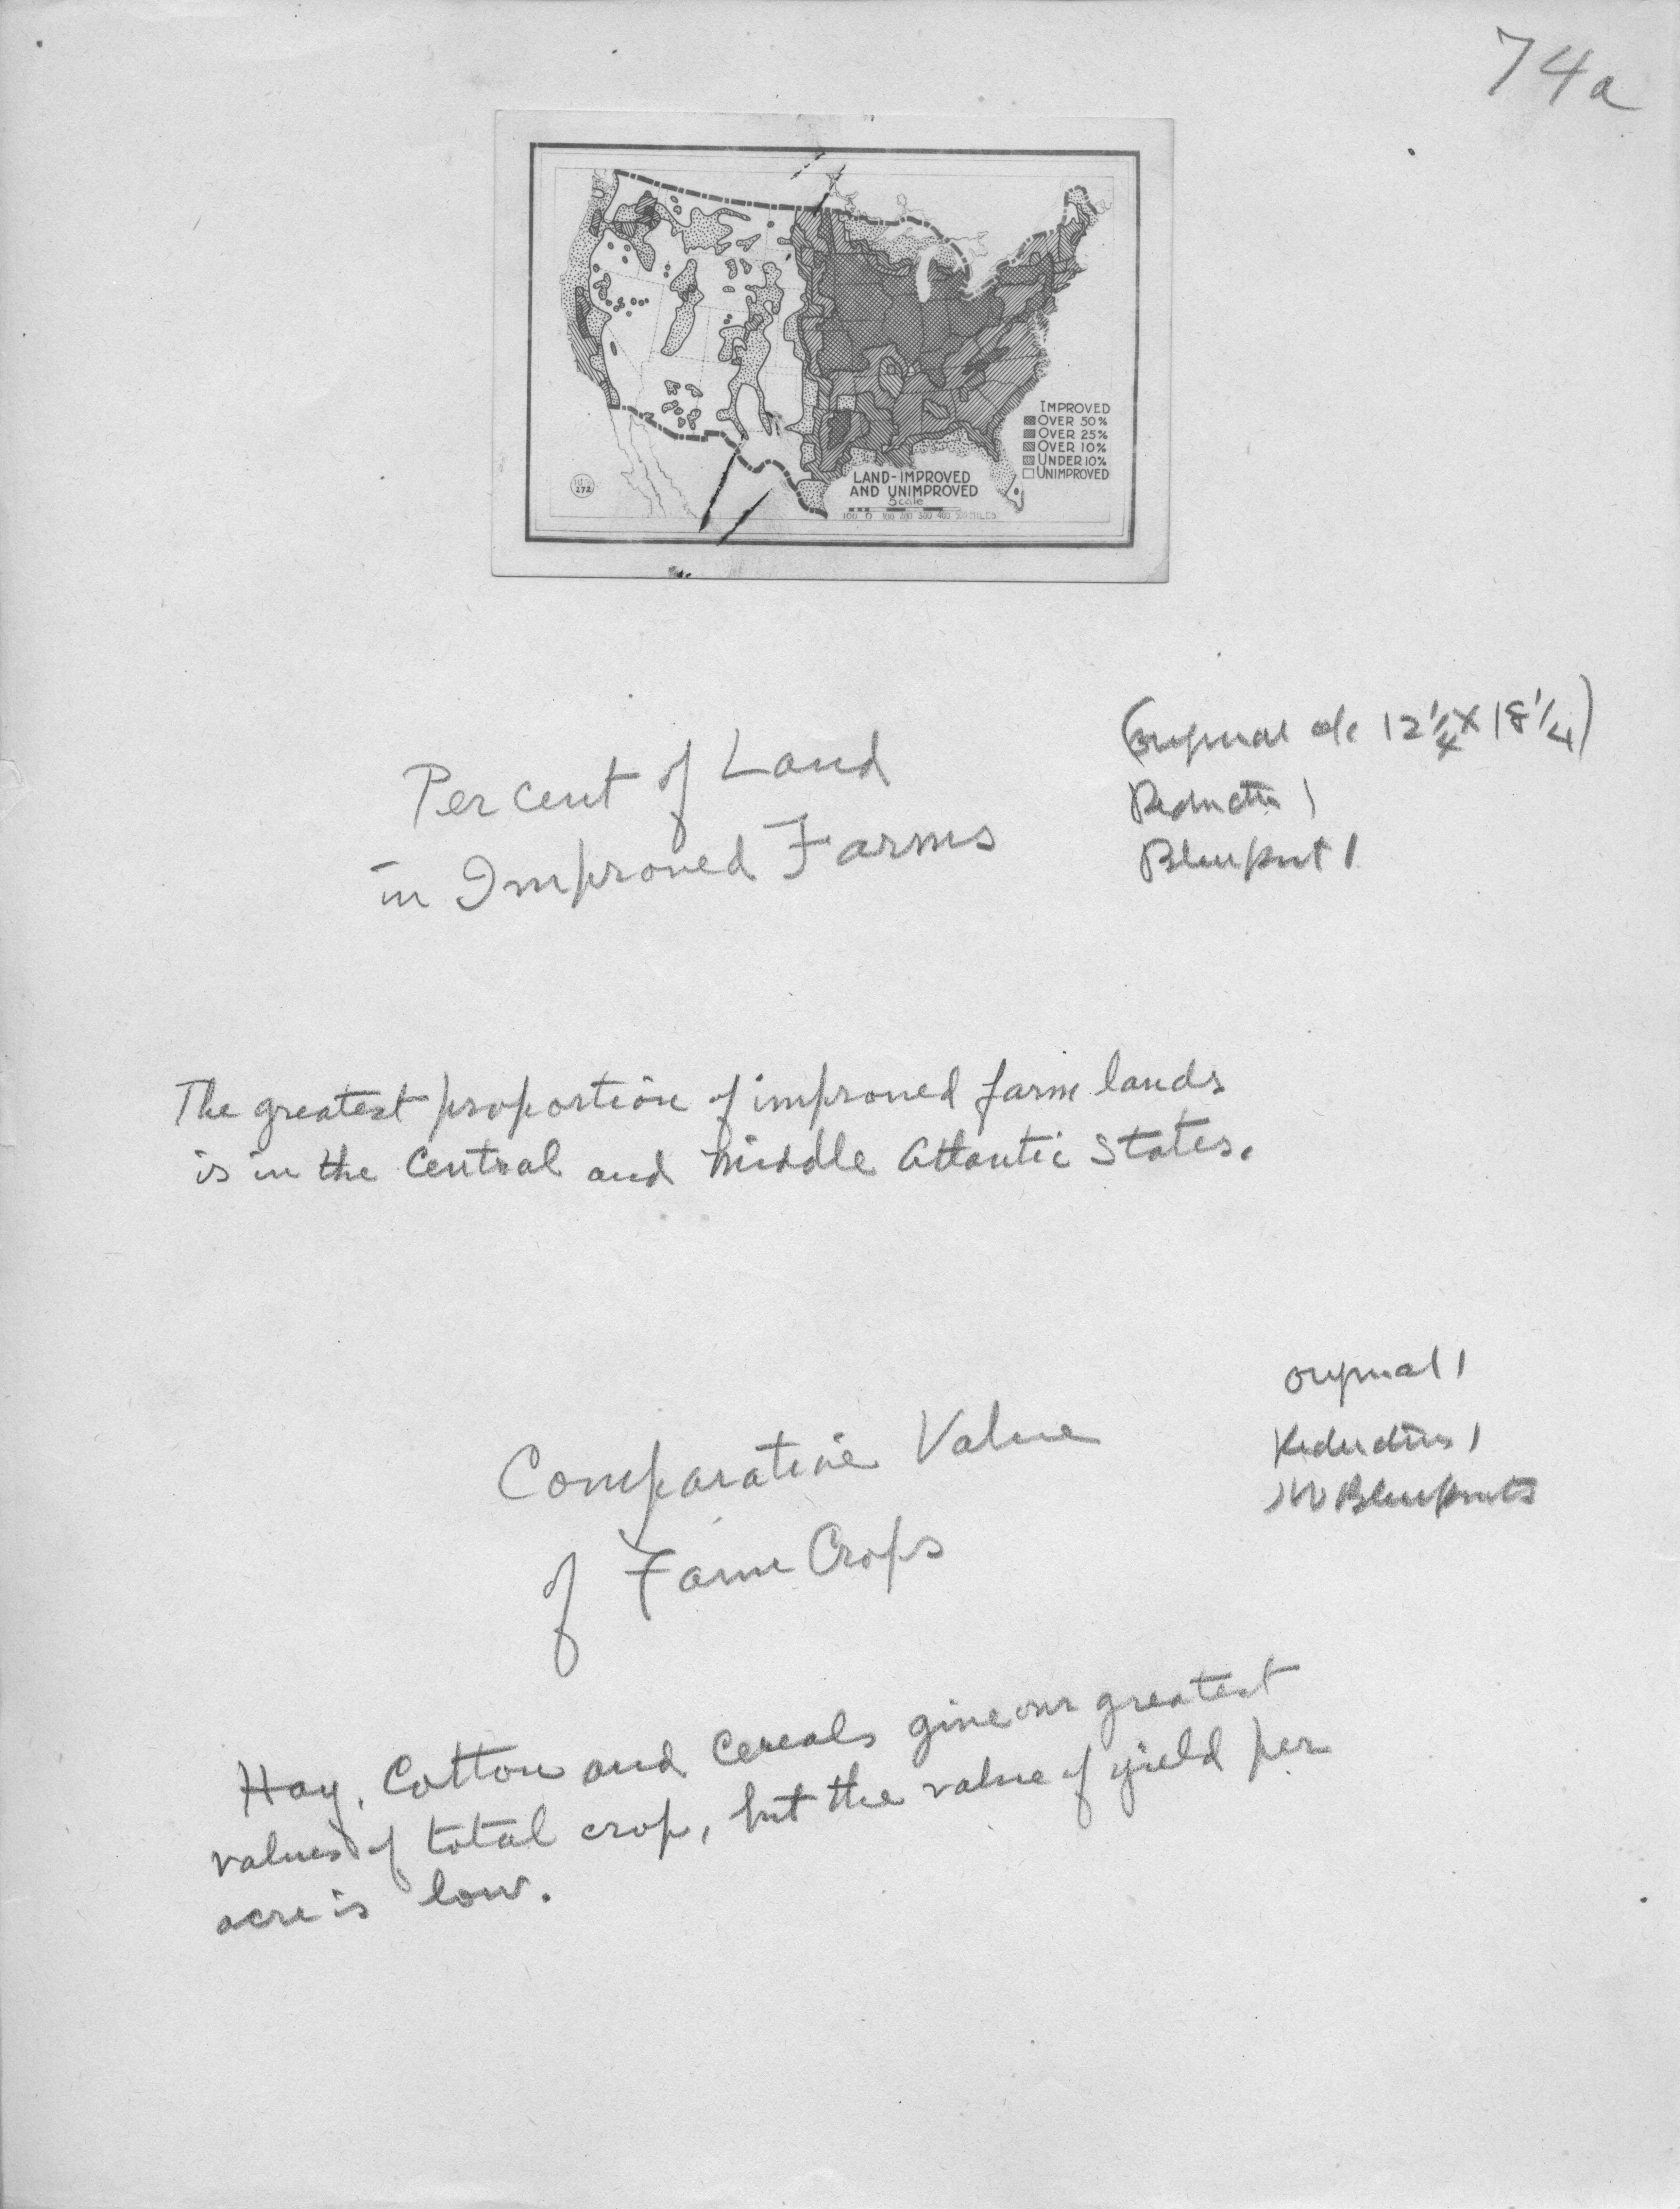 74a
IMPROVED
OVER 50%
OVER 25%
OVER 10%
UNDER 10%
UNIMPROVED
LAND-IMPROVED
AND UNIMPROVED
Scale
100 0 100 200 300 400 500 MILES
272
Per cent of Land
in Improved Farms
(original 12 1/4 x 18 1/4)
Reduction 1
Blueprint 1
The greatest proportion of improved farm lands
is in the Central and Middle Atlantic States.
original 1
Reduction 1
Blueprints
Comparative Value
of Farm Crops
Hay, Cotton and Cereals give our greatest
values of total crop, but the value of yield per
acre is low.